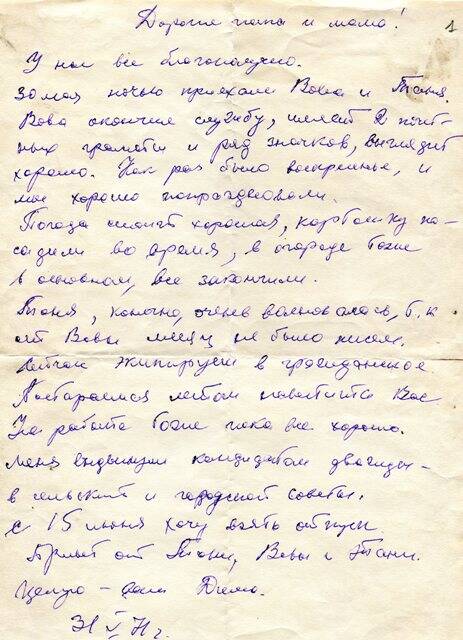 Дорогие папа и мама!
1
У нас все благополучно.
30 мая ночью приехали Вова и Таня.
Вова окончил службу, имеет 2 почет-
ных грамоты и ряд значков, выглядит
хорошо. Как раз было воскресенье, и
мы хорошо попраздновали.
Погода стоит хорошая, картошку по-
садили во время, в огороде тоже
в основном, все закончили.
Таня, конечно, очень волновалась, т.к
от Вовы месяц не было писем.
Сейчас экипируем в гражданское
Постараемся летом навестить Вас
На работе тоже пока все хорошо.
Меня выдвинули кандидатом дважды –
в сельский и городской советы.
с 15 июня хочу взять отпуск.
Привет от Тани, Вовы и Тани.
Целую – Дима.
31 V 71 г.